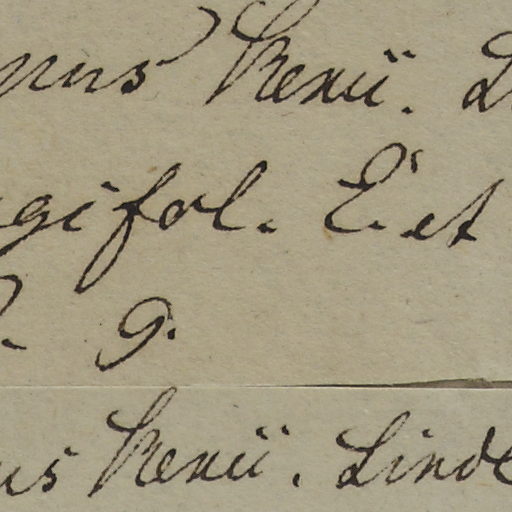 nus Kenii. L
gifol. E. et
G.
us Kenii. Linde